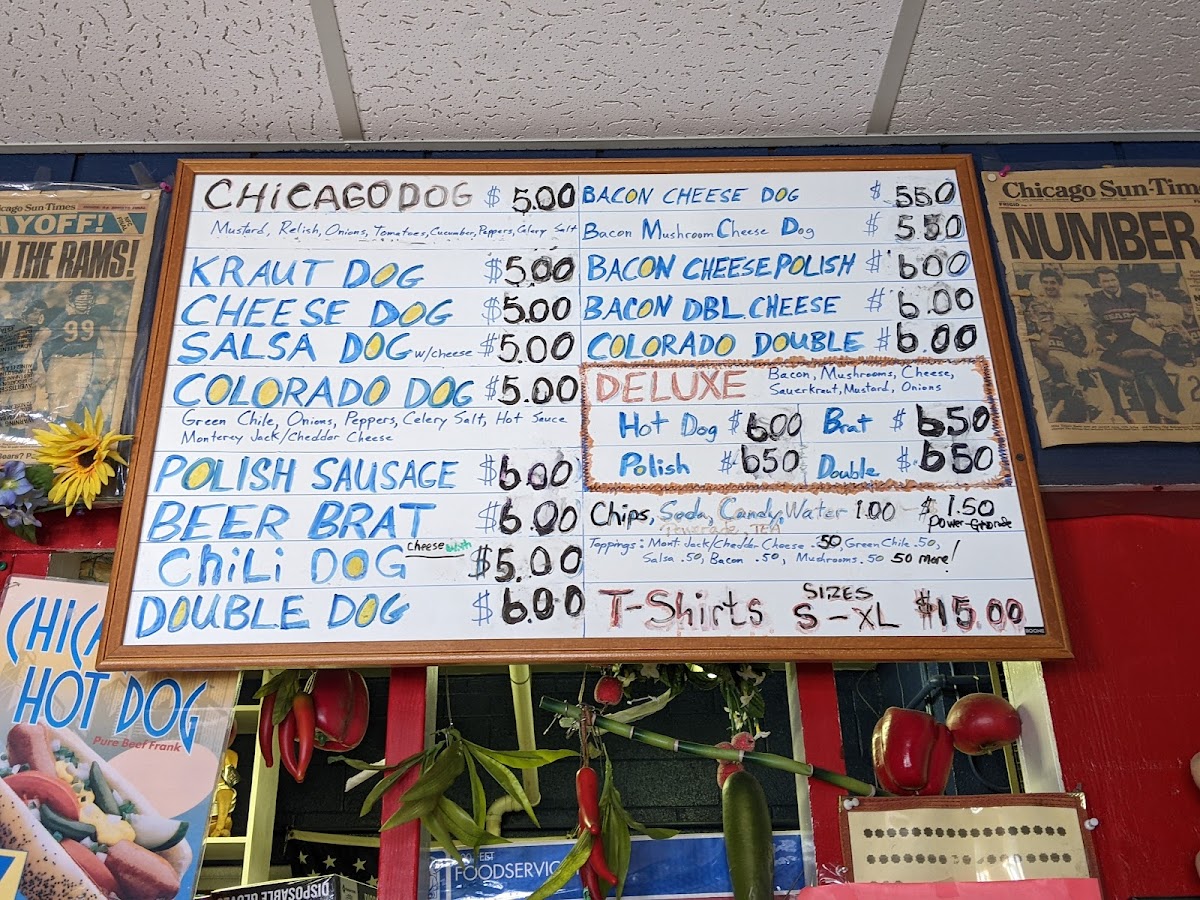 CHICAGO DOG $ 5.00
Mustard, Relish, Onions, Tomatoes, Cucumber, Peppers, Celery Salt
KRAUT DOG $5.00
CHEESE DOG $5.00
SALSA DOG w/cheese $5.00
COLORADO DOG $5.00
Green Chile, Onions, Peppers, Celery Salt, Hot Sauce
Monterey Jack/Cheddar Cheese
POLISH SAUSAGE $6.00
BEER BRAT $6.00
CHiLi DOG cheese with $5.00
DOUBLE DOG $ 6.00
BACON CHEESE DOG $ 550
Bacon Mushroom Cheese Dog $ 550
BACON CHEESE POLISH $ 600
BACON DBL. CHEESE $ 6.00
COLORADO DOUBLE $ 6.00
DELUXE Bacon, Mushrooms, Cheese,
Sauerkraut, Mustard, Onions
Hot Dog $600 Brat $ 650
Polish $650 Double $ 650
Chips, Soda, Candy, Water 1.00 $ 1.50
Powerade, TEA
Toppings: Mont. Jack/Cheddar Cheese .50, Green Chile .50,
Salsa .50, Bacon .50, Mushrooms .50 50 more!
T-Shirts SIZES S-XL $15.00
BOONE
Chicago Sun-Times
AYOFF!
N THE RAMS!
99
Chicago Sun-Times
NUMBER
CHIC
HOT DOG
Pure Beef Frank
FOODSERVIC
DISPOSABLE GLOVES